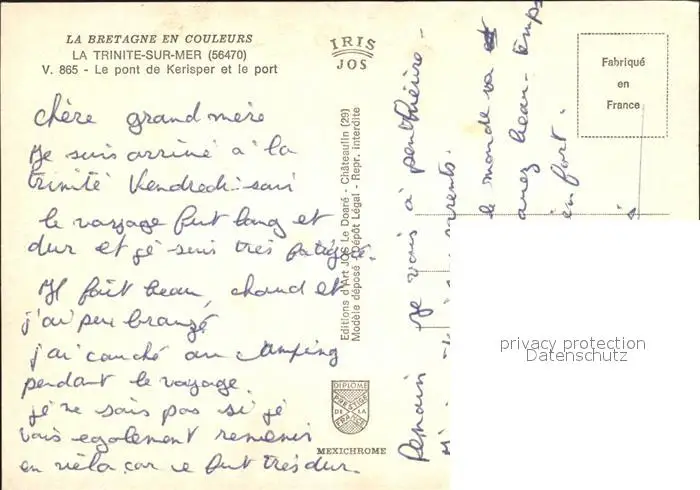 LA BRETAGNE EN COULEURS
LA TRINITE-SUR-MER (56470)
V. 865 - Le pont de Kerisper et le port
IRIS
JOS
Fabriqué
en
France
chère grand mère
Je suis arrivé a la
trinité Vendredi soir
le voyage fut long et
dur et gé suis très fatigué.
Il fait beau, chaud et
j'ai peu bronzé
j'ai couché au camping
pendant le voyage
gé ne sais pas si gé
vais egalement revenir
en vélo car ce fut très dur.
Editions d'Art JOS Le Doaré - Châteaulin (29)
Modèle déposé - Dépôt Légal - Repr. interdite
DIPLOME
PRESTIGE
DE LA
FRANCE
MEXICHROME
Demain je vais à penthièvre -
le monde va
avez beau. temps
privacy protection
Datenschutz